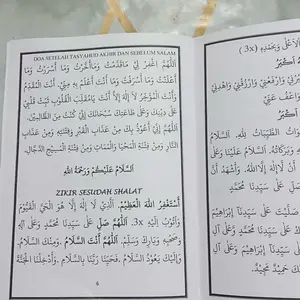 DOA SETELAH TASYAHUD AKHIR DAN SEBELUM SALAM
اَللّٰهُمَّ اغْفِرْ لِيْ مَاقَدَّمْتُ وَمَاأَخَّرْتُ وَمَا أَسْرَرْتُ وَمَا
أَعْلَنْتُ وَمَا أَسْرَفْتُ وَمَا أَنْتَ أَعْلَمُ بِهِ مِنِّي. أَنْتَ الْمُقَدِّمُ
وَأَنْتَ الْمُؤَخِّرُ لاَ إِلٰهَ إِلاَّ أَنْتَ يَامُقَلِّبَ الْقُلُوْبِ ثَبِّتْ قَلْبِي
عَلَى دِيْنِكَ وَعَلَى طَاعَتِكَ سُبْحَانَكَ إِنِّي كُنْتُ مِنَ
اَللّٰهُمَّ إِنِّي أَعُوْذُ بِكَ مِنْ عَذَابِ الْقَبْرِ وَمِنْ عَذَابِ
النَّارِ وَمِنْ فِتْنَةِ الْمَحْيَا وَالْمَمَاتِ وَمِنْ فِتْنَةِ الْمَسِيْحِ الدَّجَّالِ.
اَلسَّلاَمُ عَلَيْكُمْ وَرَحْمَةُ اللهِ
ZIKIR SESUDAH SHALAT
أَسْتَغْفِرُ اللهَ الْعَظِيْمَ. اَلَّذِيْ لاَ إِلٰهَ إِلاَّ هُوَ الْحَيُّ الْقَيُّوْمُ
وَأَتُوْبُ إِلَيْهِ 3x. اَللّٰهُمَّ صَلِّ عَلَى سَيِّدِنَا مُحَمَّدٍ وَعَلَى آلِهِ
وَصَحْبِهِ وَبَارِكْ وَسَلِّمْ. اَللّٰهُمَّ أَنْتَ السَّلاَمُ. وَمِنْكَ السَّلاَمُ.
وَإِلَيْكَ يَعُوْدُ السَّلاَمُ. فَحَيِّنَا رَبَّنَا بِالسَّلاَمِ. وَأَدْخِلْنَا الْجَنَّةَ
6
الْأَعْلَى وَبِحَمْدِهِ (3x)
أَكْبَرُ
وَارْفَعْنِي وَارْزُقْنِي وَاهْدِنِي
وَاعْفُ عَنِّي
أَكْبَرُ
الطَّيِّبَاتُ لِلّٰهِ. اَلسَّلاَمُ
وَبَرَكَاتُهُ. اَلسَّلاَمُ عَلَيْنَا وَعَلَى
لاَ إِلٰهَ إِلاَّ اللهُ. وَأَشْهَدُ
وَعَلَى آلِ سَيِّدِنَا مُحَمَّدٍ
صَلَّيْتَ عَلَى سَيِّدِنَا إِبْرَاهِيْمَ
عَلَى سَيِّدِنَا مُحَمَّدٍ وَعَلَى آلِ
سَيِّدِنَا إِبْرَاهِيْمَ وَعَلَى آلِ
حَمِيْدٌ مَجِيْدٌ.